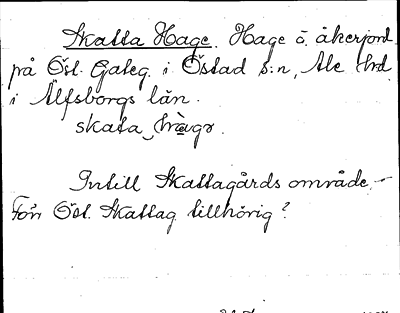 Skatta Hage. Hage o. åkerjord
på Öst. Gateg. i Östad s:n, Ale hrd
i Älfsborgs län.
skata hàgə.
Intill Skattagårds område. –
Förr Öst. Skattag. tillhörig?